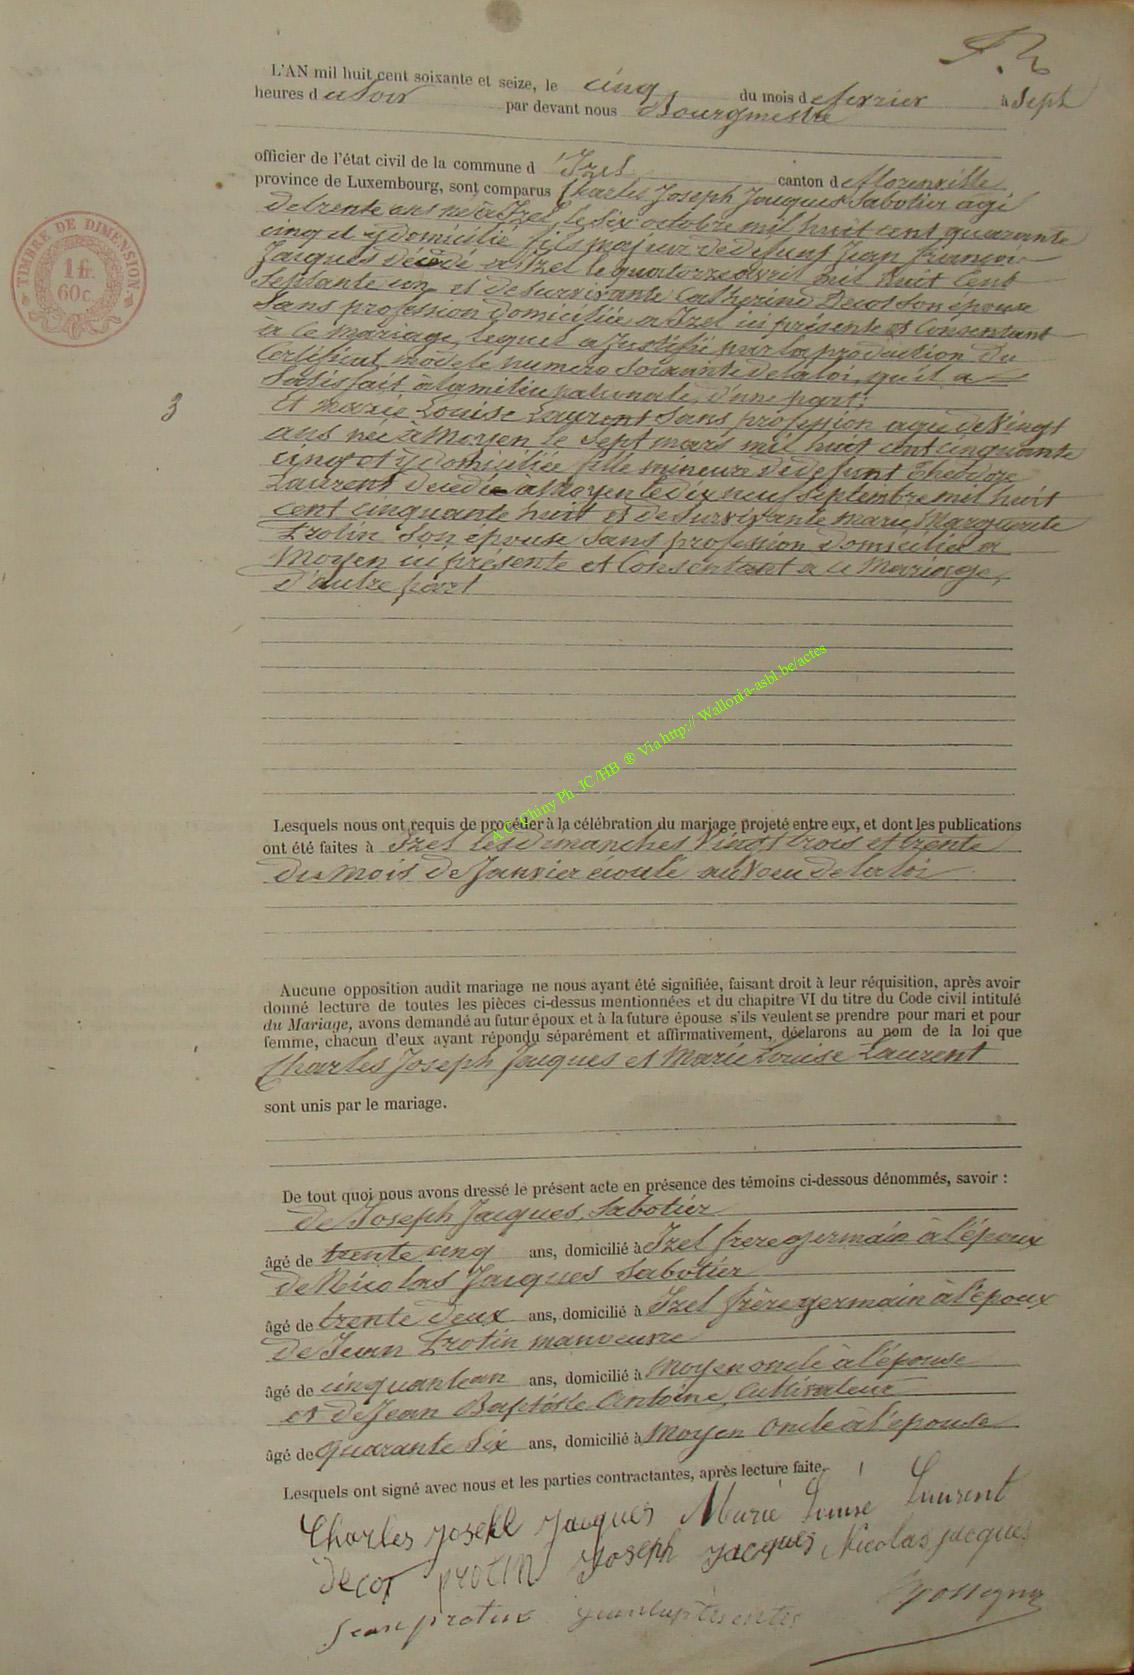 L'AN mil huit cent soixante et seize, le cinq du mois de fevrier à Sept
heures du Soir par devant nous Bourgmestre
officier de l'état civil de la commune d'Izel canton de florenville
province de Luxembourg, sont comparus Charles Joseph Jacques Sabotier agé
de trente ans né à Izel le Six octobre mil huit cent quarante
cinq et y domicilié fils majeur de defunt Jean françois
Jacques décédé a Izel le quatorze avril mil huit Cent
Septante un et de Survivante Catherine Decot Son épouse
Sans profession domiciliée a Izel ici présente et Consentant
à ce mariage, lequel a justifié par la production du
Certificat modele numero Soixante de la loi, qu'il a
Satisfait à la milice nationale, d'une part;
Et marie Louise Laurent Sans profession agée de Vingt
ans née à Moyen le Sept mars mil huit cent cinquante
cinq et y domiciliée fille mineure de defunt Théodore
Laurent decedé a Moyen le dix neuf Septembre mil huit
cent cinquante huit et de Survivante Marie Marguerite
Protin Son épouse Sans profession domiciliée a
Moyen ici présente et Consentant a ce Mariage,
d'autre part
Lesquels nous ont requis de procéder à la célébration du mariage projeté entre eux, et dont les publications
ont été faites à Izel les dimanches Vingt trois et trente
du Mois de Janvier écoulé au Voeu de la loi
Aucune opposition audit mariage ne nous ayant été signifiée, faisant droit à leur réquisition, après avoir
donné lecture de toutes les pièces ci-dessus mentionnées et du chapitre VI du titre du Code civil intitulé
du Mariage, avons demandé au futur époux et à la future épouse s'ils veulent se prendre pour mari et pour
femme, chacun d'eux ayant répondu séparément et affirmativement, déclarons au nom de la loi que
Charles Joseph Jacques et Marie Louise Laurent
sont unis par le mariage.
De tout quoi nous avons dressé le présent acte en présence des témoins ci-dessous dénommés, savoir :
de Joseph Jacques, Sabotier
âgé de trente cinq ans, domicilié à Izel frere germain à l'époux
de Nicolas Jacques Sabotier
âgé de trente deux ans, domicilié à Izel frère germain à l'époux
de Jean Protin manoeuvre
âgé de cinquante an ans, domicilié à Moyen oncle à l'épouse
et de Jean Baptiste Antoine, Cultivateur
âgé de quarante Six ans, domicilié à Moyen Oncle à l'épouse
Lesquels ont signé avec nous et les parties contractantes, après lecture faite.
Charles Joseph Jacques Marie Louise Laurent
Decot protin Joseph Jacques Nicolas Jacques
Jean protin
TIMBRE DE DIMENSION.
1 fr.
60 c.
3
A.C. Chiny Ph JC/HB ® Via http:// Wallonia-asbl.be/actes